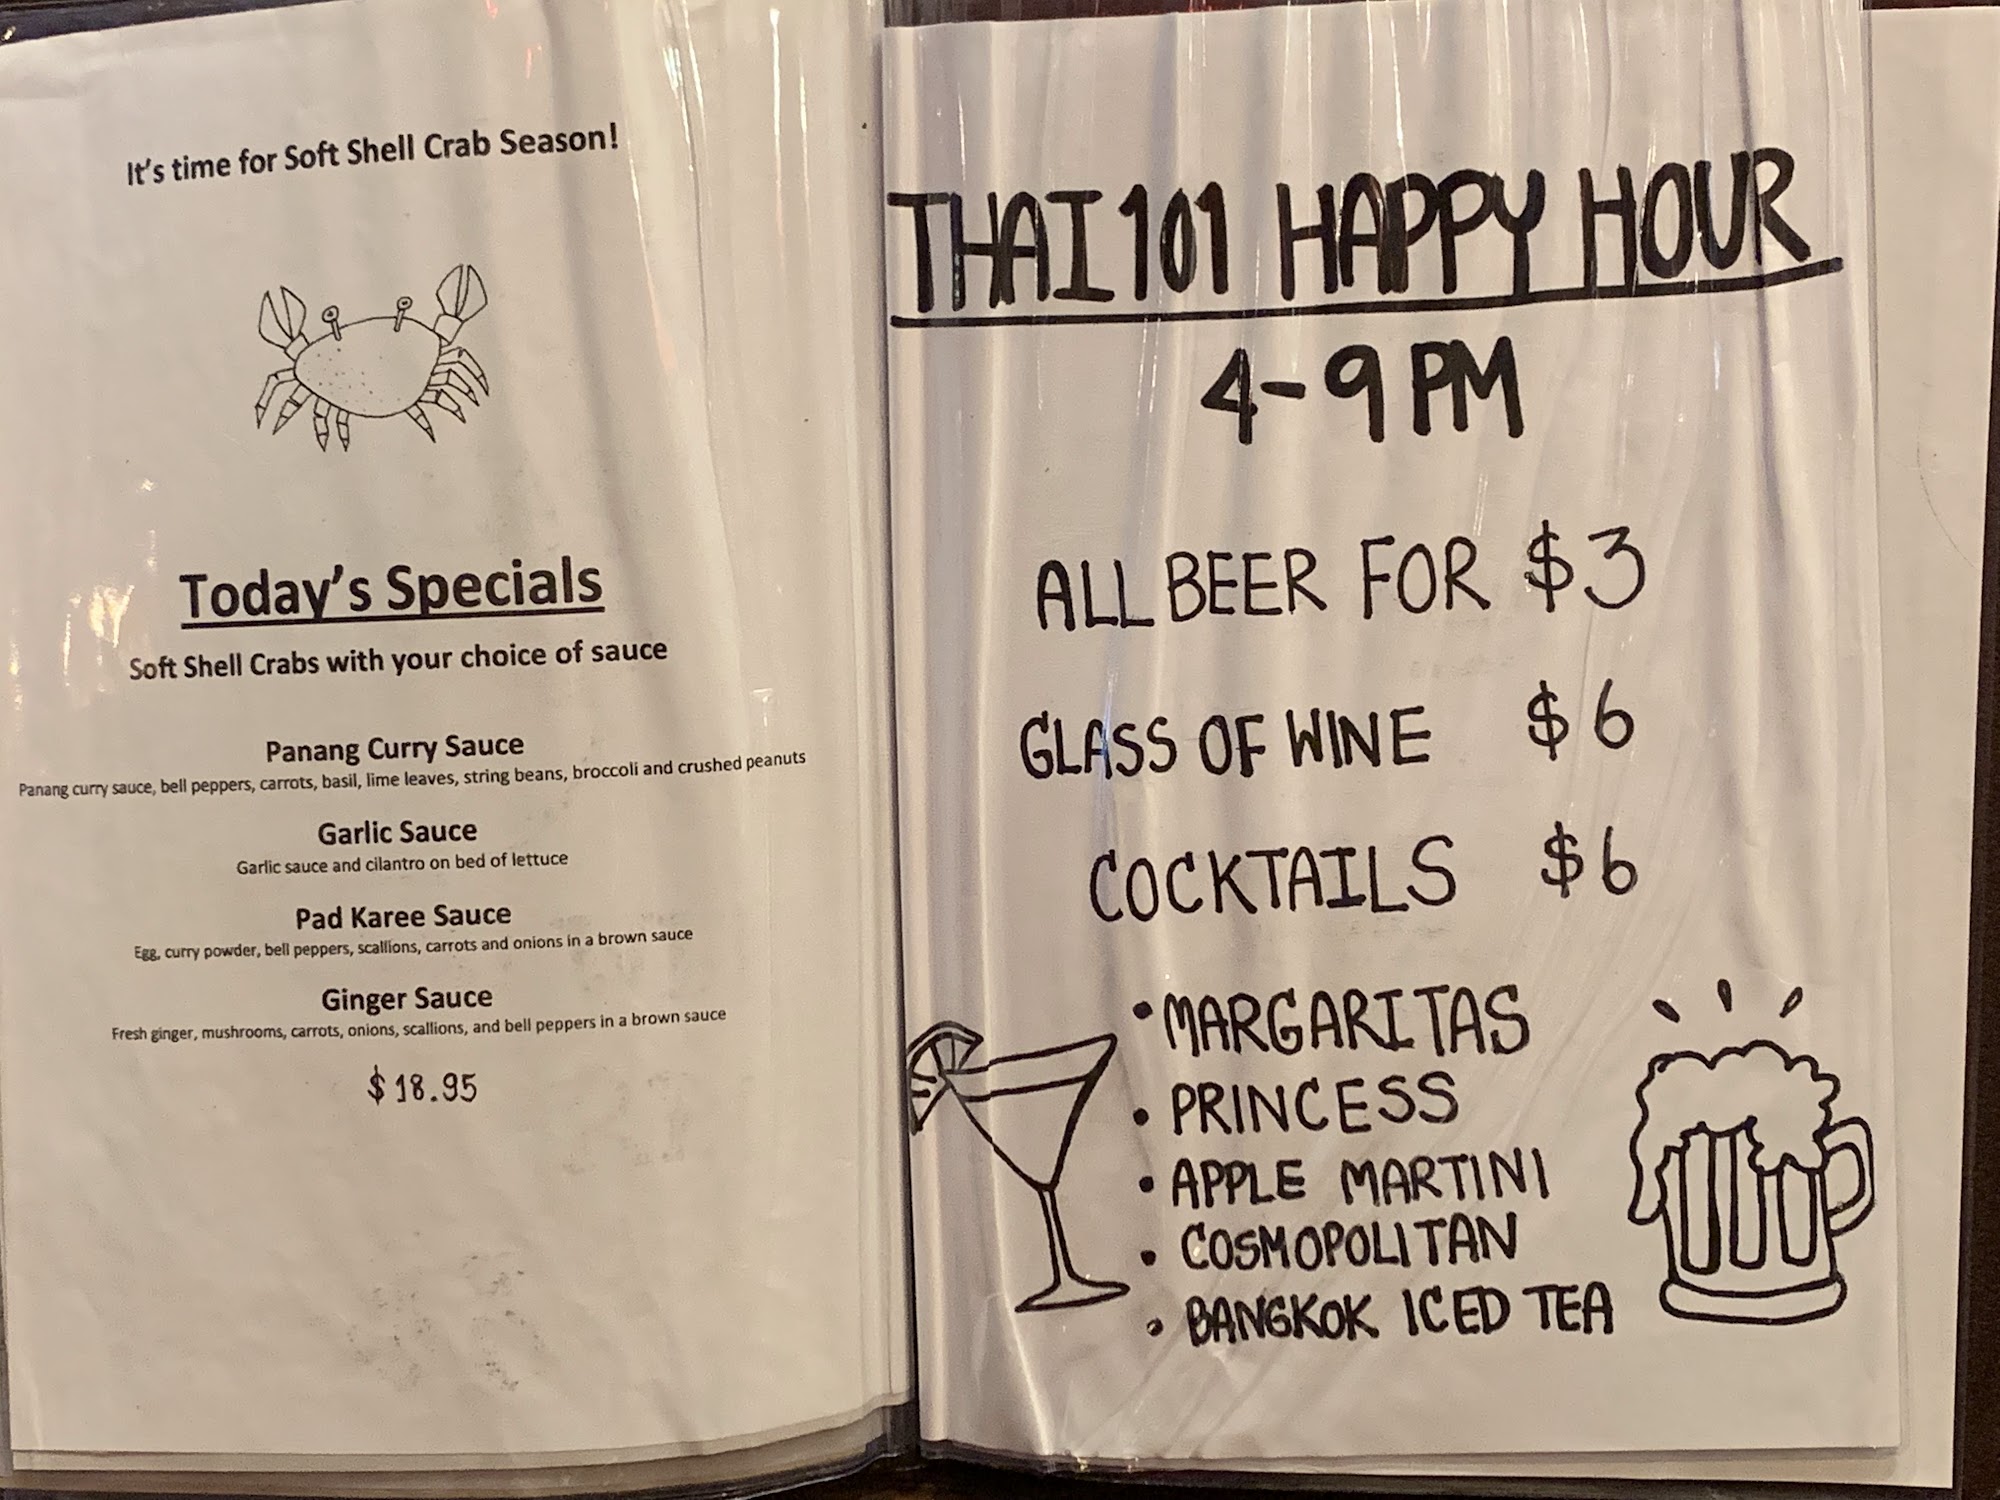 It's time for Soft Shell Crab Season!
Today's Specials
Soft Shell Crabs with your choice of sauce
Panang Curry Sauce
Panang curry sauce, bell peppers, carrots, basil, lime leaves, string beans, broccoli and crushed peanuts
Garlic Sauce
Garlic sauce and cilantro on bed of lettuce
Pad Karee Sauce
Egg, curry powder, bell peppers, scallions, carrots and onions in a brown sauce
Ginger Sauce
Fresh ginger, mushrooms, carrots, onions, scallions, and bell peppers in a brown sauce
$18.95
THAI 101 HAPPY HOUR
4-9 PM
ALL BEER FOR $3
GLASS OF WINE $6
COCKTAILS $6
• MARGARITAS
• PRINCESS
• APPLE MARTINI
• COSMOPOLITAN
• BANGKOK ICED TEA